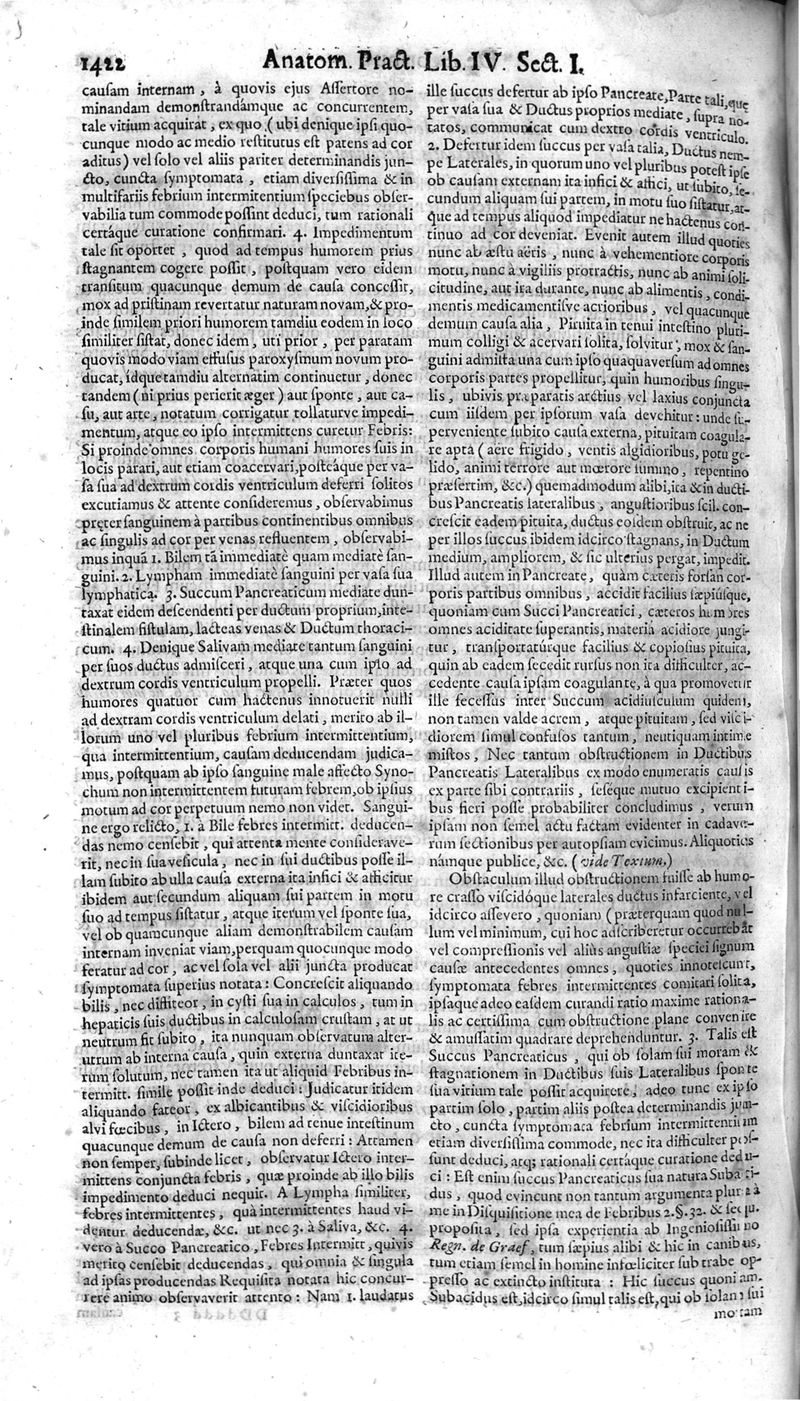 1422 Anatom. Pract. Lib. IV. Sect. I.
causam internam, à quovis ejus Assertore no-
minandam demonstrandámque ac concurrentem,
tale vitium acquirat, ex quo (ubi denique ipsi quo-
cunque modo ac medio restitutus est patens ad cor
aditus) vel solo vel aliis pariter determinandis jun-
cto, cuncta symptomata, etiam diversissima & in
multifariis febrium intermitentium speciebus obser-
vabilia tum commode possint deduci, tum rationali
certáque curatione confirmari. 4. Impedimentum
tale sit oportet, quod ad tempus humorem prius
stagnantem cogere possit, postquam vero eidem
transitum quacunque demum de causa concessit,
mox ad pristinam revertatur naturam novam, & pro-
inde similem priori humorem tamdiu eodem in loco
similiter sistat, donec idem, uti prior, per paratam
quovis modo viam effusus paroxysmum novum pro-
ducat, ídque tamdiu alternatim continuetur, donec
tandem (ni prius perierit æger) aut sponte, aut ca-
su, aut arte, notatum corrigatur tollaturve impedi-
mentum, atque eo ipso intermittens curetur Febris:
Si proinde omnes corporis humani humores suis in
locis parari, aut etiam coacervari, posteáque per va-
sa sua ad dextrum cordis ventriculum deferri solitos
excutiamus & attente consideremus, observabimus
pręter sanguinem à partibus continentibus omnibus
ac singulis ad cor per venas refluentem, observabi-
mus inquā 1. Bilem tā immediatè quam mediatè san-
guini. 2. Lympham immediatè sanguini per vasa sua
lymphatica. 3. Succum Pancreaticum mediate dun-
taxat eidem descendenti per ductum proprium, inte-
stinalem fistulam, lacteas venas & Ductum thoraci-
cum. 4. Denique Salivam mediate tantum sanguini
per suos ductus admisceri, atque una cum ipso ad
dextrum cordis ventriculum propelli. Præter quos
humores quatuor cum hactenus innotuerit nulli
ad dextram cordis ventriculum delati, merito ab il-
lorum uno vel pluribus febrium intermittentium,
qua intermittentium, causam deducendam judica-
mus, postquam ab ipso sanguine male affecto Syno-
chum non intermittentem futuram febrem, ob ipsius
motum ad cor perpetuum nemo non videt. Sangui-
ne ergo relicto, 1. à Bile febres intermitt. deducen-
das nemo censebit, qui attenta mente considerave-
rit, nec in sua vesicula, nec in sui ductibus posse il-
lam subito ab ulla causa externa ita infici & affici ut
ibidem aut secundum aliquam sui partem in motu
suo ad tempus sistatur, atque iterum vel sponte sua,
vel ob quamcunque aliam demonstrabilem causam
internam inveniat viam, perquam quocunque modo
feratur ad cor, ac vel sola vel alii juncta producat
symptomata superius notata: Concrescit aliquando
bilis, nec diffiteor, in cysti sua in calculos, tum in
hepaticis suis ductibus in calculosam crustam, at ut
neutrum fit subito, ita nunquam observatum alter-
utrum ab interna causa, quin externa duntaxat ite-
rum solutum, nec tamen ita ut aliquid Febribus in-
termitt. simile possit inde deduci: Judicatur itidem
aliquando fateor, ex albicantibus & viscidioribus
alvi fœcibus, in Ictero, bilem ad tenue intestinum
quacunque demum de causa non deferri: Attamen
non semper, subinde licet, observatur Ictero inter-
mittens conjuncta febris, quæ proinde ab illo bilis
impedimento deduci nequit. A Lympha similiter,
febres intermittentes, quà intermittentes haud vi-
dentur deducendæ, &c. ut nec 3. à Saliva, &c. 4.
vero à Succo Pancreatico, Febres Intermitt, quivis
merito censebit deducendas, qui omnia & singula
ad ipsas producendas Requisita notata hic concur-
rere animo observaverit attento: Nam 1. laudatus
ille succus defertur ab ipso Pancreate, Parte tali, que
per vasa sua & Ductus proprios mediate, supra no-
tatos, communicat cum dextro cordis ventriculo.
2. Defertur idem succus per vasa talia, Ductus nem-
pe Laterales, in quorum uno vel pluribus potest ipse
ob causam externam ita infici & affici, ut subito, se-
cundum aliquam sui partem, in motu suo sistatur, at-
que ad tempus aliquod impediatur ne hactenus con-
tinuo ad cor deveniat. Evenit autem illud quoties
nunc ab æstu aëris, nunc à vehementiore corporis
motu, nunc à vigiliis protractis, nunc ab animi soli-
citudine, aut ira durante, nunc ab alimentis, condi-
mentis medicamentisve acrioribus, vel quacunque
demum causa alia, Pituita in tenui intestino pluri-
mum colligi & acervari solita, solvitur, mox & san-
guini admista una cum ipso quaquaversum ad omnes
corporis partes propellitur, quin humoribus singu-
lis, ubivis præparatis arctius vel laxius conjuncta
cum iisdem per ipsorum vasa devehitur: unde su-
perveniente subito causa externa, pituitam coagula-
re apta (aëre frigido, ventis algidioribus, potu ge-
lido, animi terrore aut mœrore summo, repentino
præsertim, &c.) quemadmodum alibi, ita & in ducti-
bus Pancreatis lateralibus, angustioribus scil. con-
crescit eadem pituita, ductus eosdem obstruit, ac ne
per illos succus ibidem idcirco stagnans, in Ductum
medium, ampliorem, & sic ulterius pergat, impedit.
Illud autem in Pancreate, quàm cæteris forsan cor-
poris partibus omnibus, accidit facilius sæpiúsque,
quoniam cum Succi Pancreatici, cæteros humores
omnes aciditate superantis, materiâ acidiore jungi-
tur, transportatúrque facilius & copiosius pituita,
quin ab eadem secedit rursus non ita difficulter, ac-
cedente causa ipsam coagulante, à qua promovetur
ille secessus inter Succum acidiusculum quidem,
non tamen valde acrem, atque pituitam, sed visci-
diorem simul confusos tantum, neutiquam intime
mistos, Nec tantum obstructionem in Ductibus
Pancreatis Lateralibus ex modo enumeratis causis
ex parte sibi contrariis, seséque mutuo excipienti-
bus fieri posse probabiliter concludimus, verum
ipsam non semel actu factam evidenter in cadave-
rum sectionibus per autopsiam evicimus. Aliquoties
námque publice, &c. (vide Textum.)
Obstaculum illud obstructionem fuisse ab humo-
re crasso viscidóque laterales ductus infarciente, vel
idcirco assevero, quoniam (præterquam quod nul-
lum vel minimum, cui hoc adscriberetur occurrebat
vel compressionis vel alius angustiæ speciei signum
causæ antecedentes omnes, quoties innotescunt,
symptomata febres intermittentes comitari solita,
ipsaque adeo easdem curandi ratio maxime rationa-
lis ac certissima cum obstructione plane convenire
& amussatim quadrare deprehenduntur. 3. Talis est
Succus Pancreaticus, qui ob solam sui moram &
stagnationem in Ductibus suis Lateralibus sponte
sua vitium tale possit acquirere, adeo tunc ex ipso
partim solo, partim aliis postea determinandis jun-
cto, cuncta symptomata febrium intermittentium
etiam diversissima commode, nec ita difficulter pos-
sunt deduci, atq; rationali certáque curatione dedu-
ci: Est enim succus Pancreaticus sua natura Subaci-
dus, quod evincunt non tantum argumenta plura à
me in Disquisitione mea de Febribus 2. §. 32. & sequ.
proposita, sed ipsa experientia ab Ingeniosissimo
Regn. de Graef, tum sæpius alibi & hic in canibus,
tum etiam semel in homine infœliciter sub trabe op-
presso ac extincto instituta: Hic succus quoniam.
Subacidus est, idcirco simul talis est, qui ob solam sui
moram